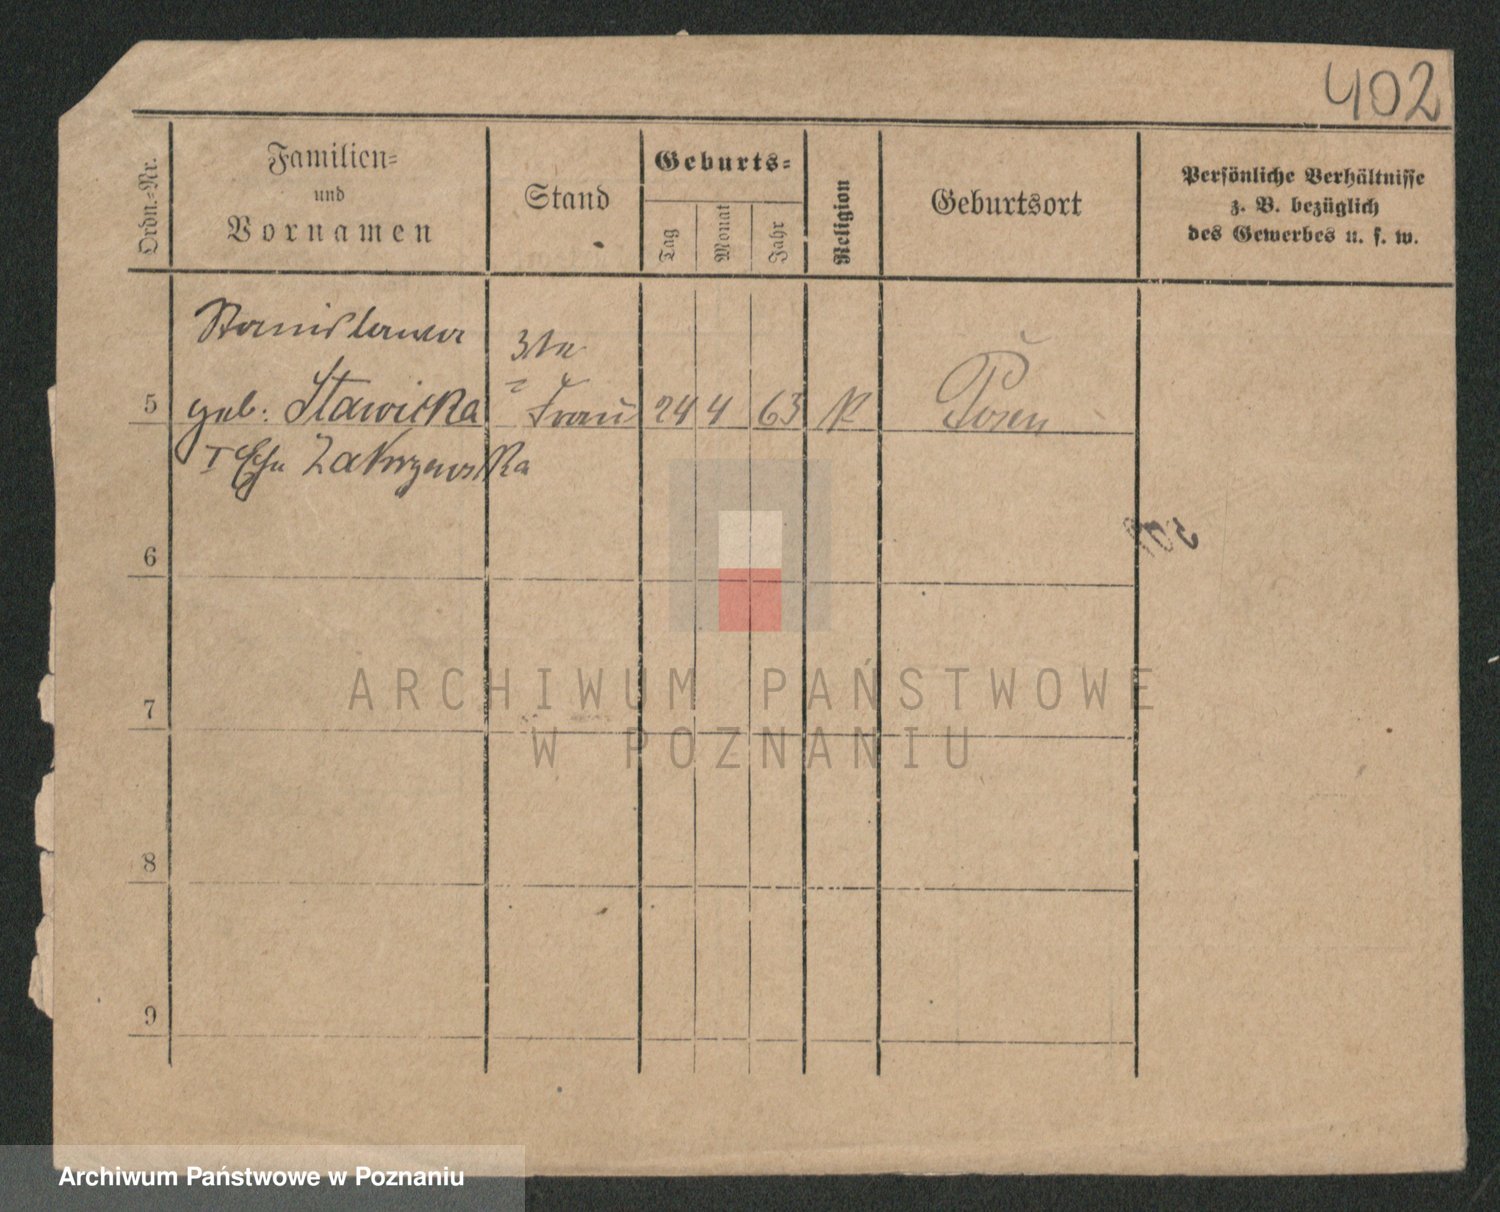 402
Ordn.-Nr.
Familien-
und
Vornamen
Stand
Geburts-
Tag
Monat
Jahr
Religion
Geburtsort
Persönliche Verhältnisse
z. B. bezüglich
des Gewerbes u. s. w.
Stanislawa
3te
5 geb: Stawicka Frau 24 4 63 K Posen
I Ehe Zakrzewska
6
7
8
9
ARCHIWUM PAŃSTWOWE
W POZNANIU
Archiwum Państwowe w Poznaniu